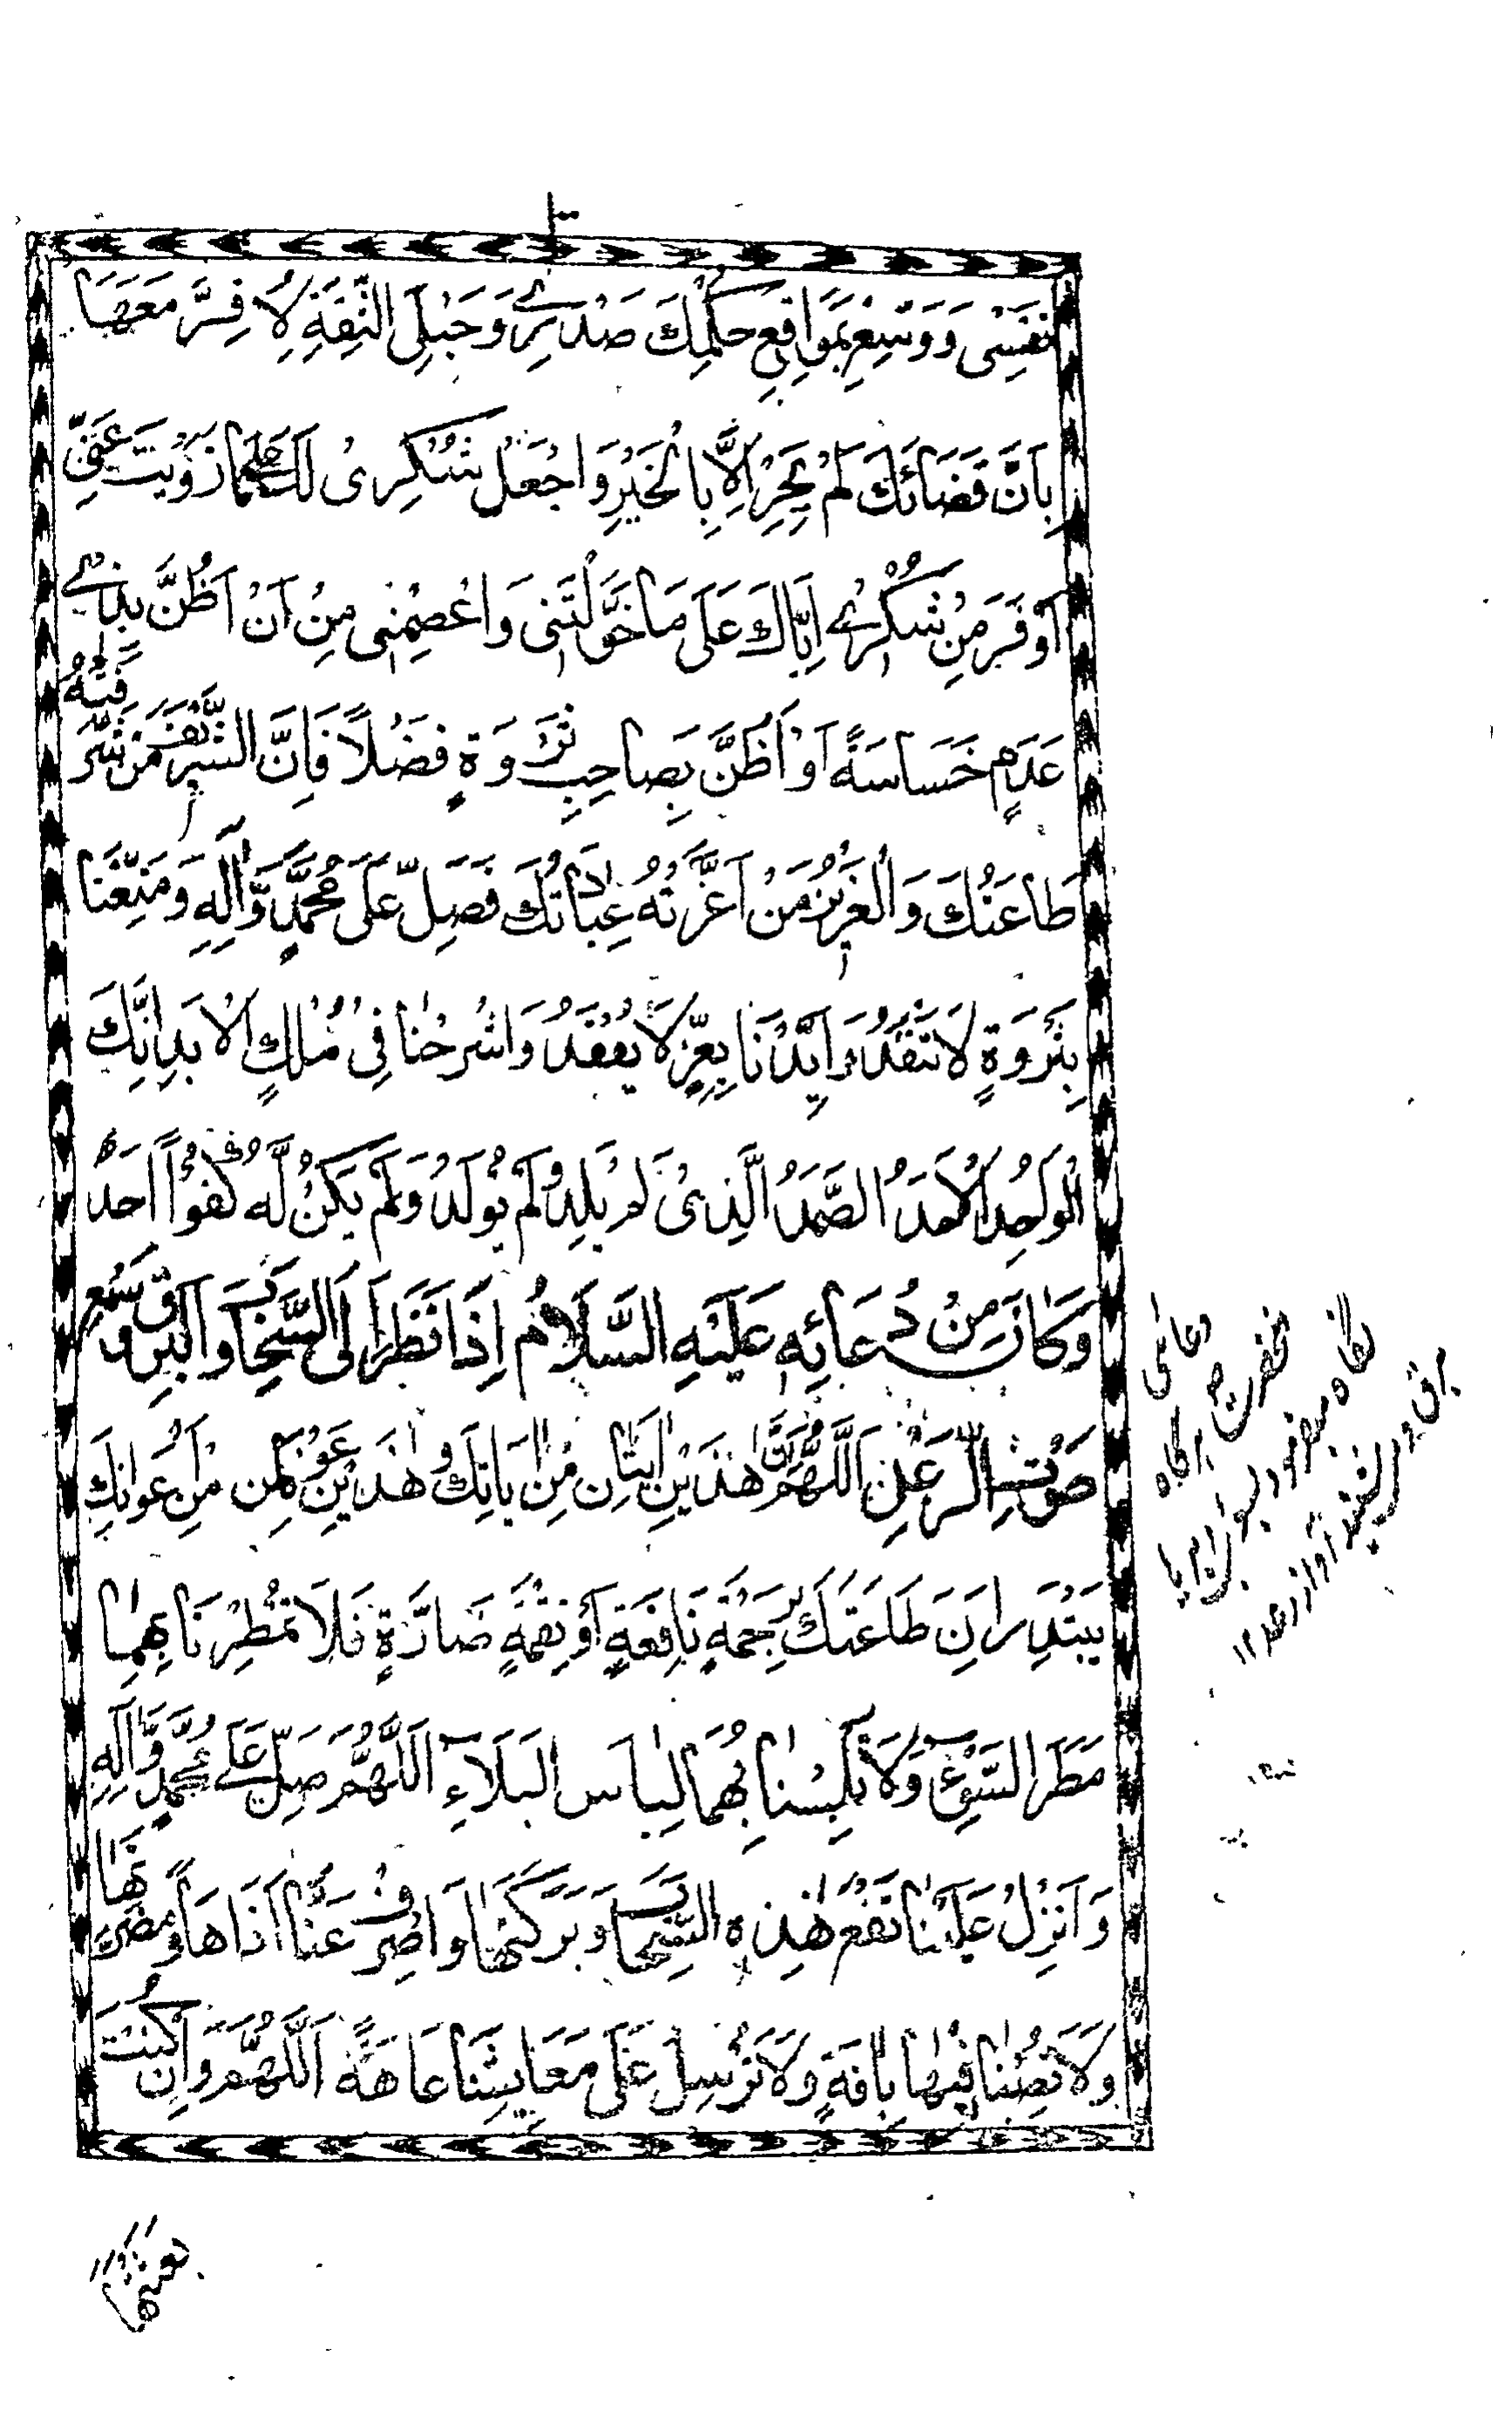 نَفْسِى وَوَسِّعْ بِمَوَاقِعِ حُكْمِكَ صَدْرِىْ وَهَبْ لِىَ الثِّقَةِ لِاُ قِرَّ مَعَهَا
بِاَنَّ قَضَائَكَ لَمْ يَجْرِ اِلَّا بِالْخَيْرِ وَاجْعَلْ شُكْرِىْ لَكَ عَلٰى مَا زَوَيْتَ عَنِّى
اَوْفَرَ مِنْ شُكْرِىْ اِيَّاكَ عَلٰى مَا خَوَّلْتَنِى وَاعْصِمْنِى مِنْ اَنْ اَظُنَّ بِذِىْ
عَدَمٍ خَسَاسَةً اَوْ اَظُنَّ بِصَاحِبِ ثَرْوَةٍ فَضْلاً فَاِنَّ الشَّرِيْفَ مَنْ شَرَّفَتْهُ
طَاعَتُكَ وَالْعَزِيْزُ مَنْ اَعَزَّتْهُ عِبَادَتُكَ فَصَلِّ عَلٰى مُحَمَّدٍ وَّاٰلِهٖ وَمَتِّعْنَا
بِثَرْوَةٍ لَا تَنْفَدُ وَاَيِّدْنَا بِعِزٍّ لَا يُفْقَدُ وَاَسْرِحْنَا فِىْ مُلْكِ الْاَبَدِ اِنَّكَ
الْوَاحِدُ الْاَحَدُ الصَّمَدُ الَّذِىْ لَمْ يَلِدْ وَلَمْ يُوْلَدْ وَلَمْ يَكُنْ لَّهٗ كُفُوًا اَحَدٌ
وَكَانَ مِنْ دُعَائِهٖ عَلَيْهِ السَّلَامُ اِذَا نَظَرَ اِلَى السَّحَابِ وَالْبَرْقِ وَسَمِعَ
صَوْتَ الرَّعْدِ اَللّٰهُمَّ اِنَّ هٰذَيْنِ اٰيَتَانِ مِنْ اٰيَاتِكَ وَهٰذَيْنِ عَوْنَيْنِ مِنْ اَعْوَانِكَ
يَبْتَدِرَانِ طَاعَتَكَ بِرَحْمَةٍ نَافِعَةٍ اَوْ نِقْمَةٍ ضَارَّةٍ فَلَا تُمْطِرْنَا بِهِمَا
مَطَرَ السَّوْءِ وَلَا تُلْبِسْنَا بِهِمَا لِبَاسَ الْبَلَاءِ اَللّٰهُمَّ صَلِّ عَلٰى مُحَمَّدٍ وَّاٰلِهٖ
وَاَنْزِلْ عَلَيْنَا نَفْعَ هٰذِهِ السَّحَابِ وَبَرَكَتَهَا وَاصْرِفْ عَنَّا اَذَاهَا وَمَضَرَّتَهَا
وَلَا تُصِبْنَا فِيْهَا بِاٰفَةٍ وَلَا تُرْسِلْ عَلٰى مَعَايِشِنَا عَاهَةً اَللّٰهُمَّ وَاِنْ كُنْتَ
دعائى